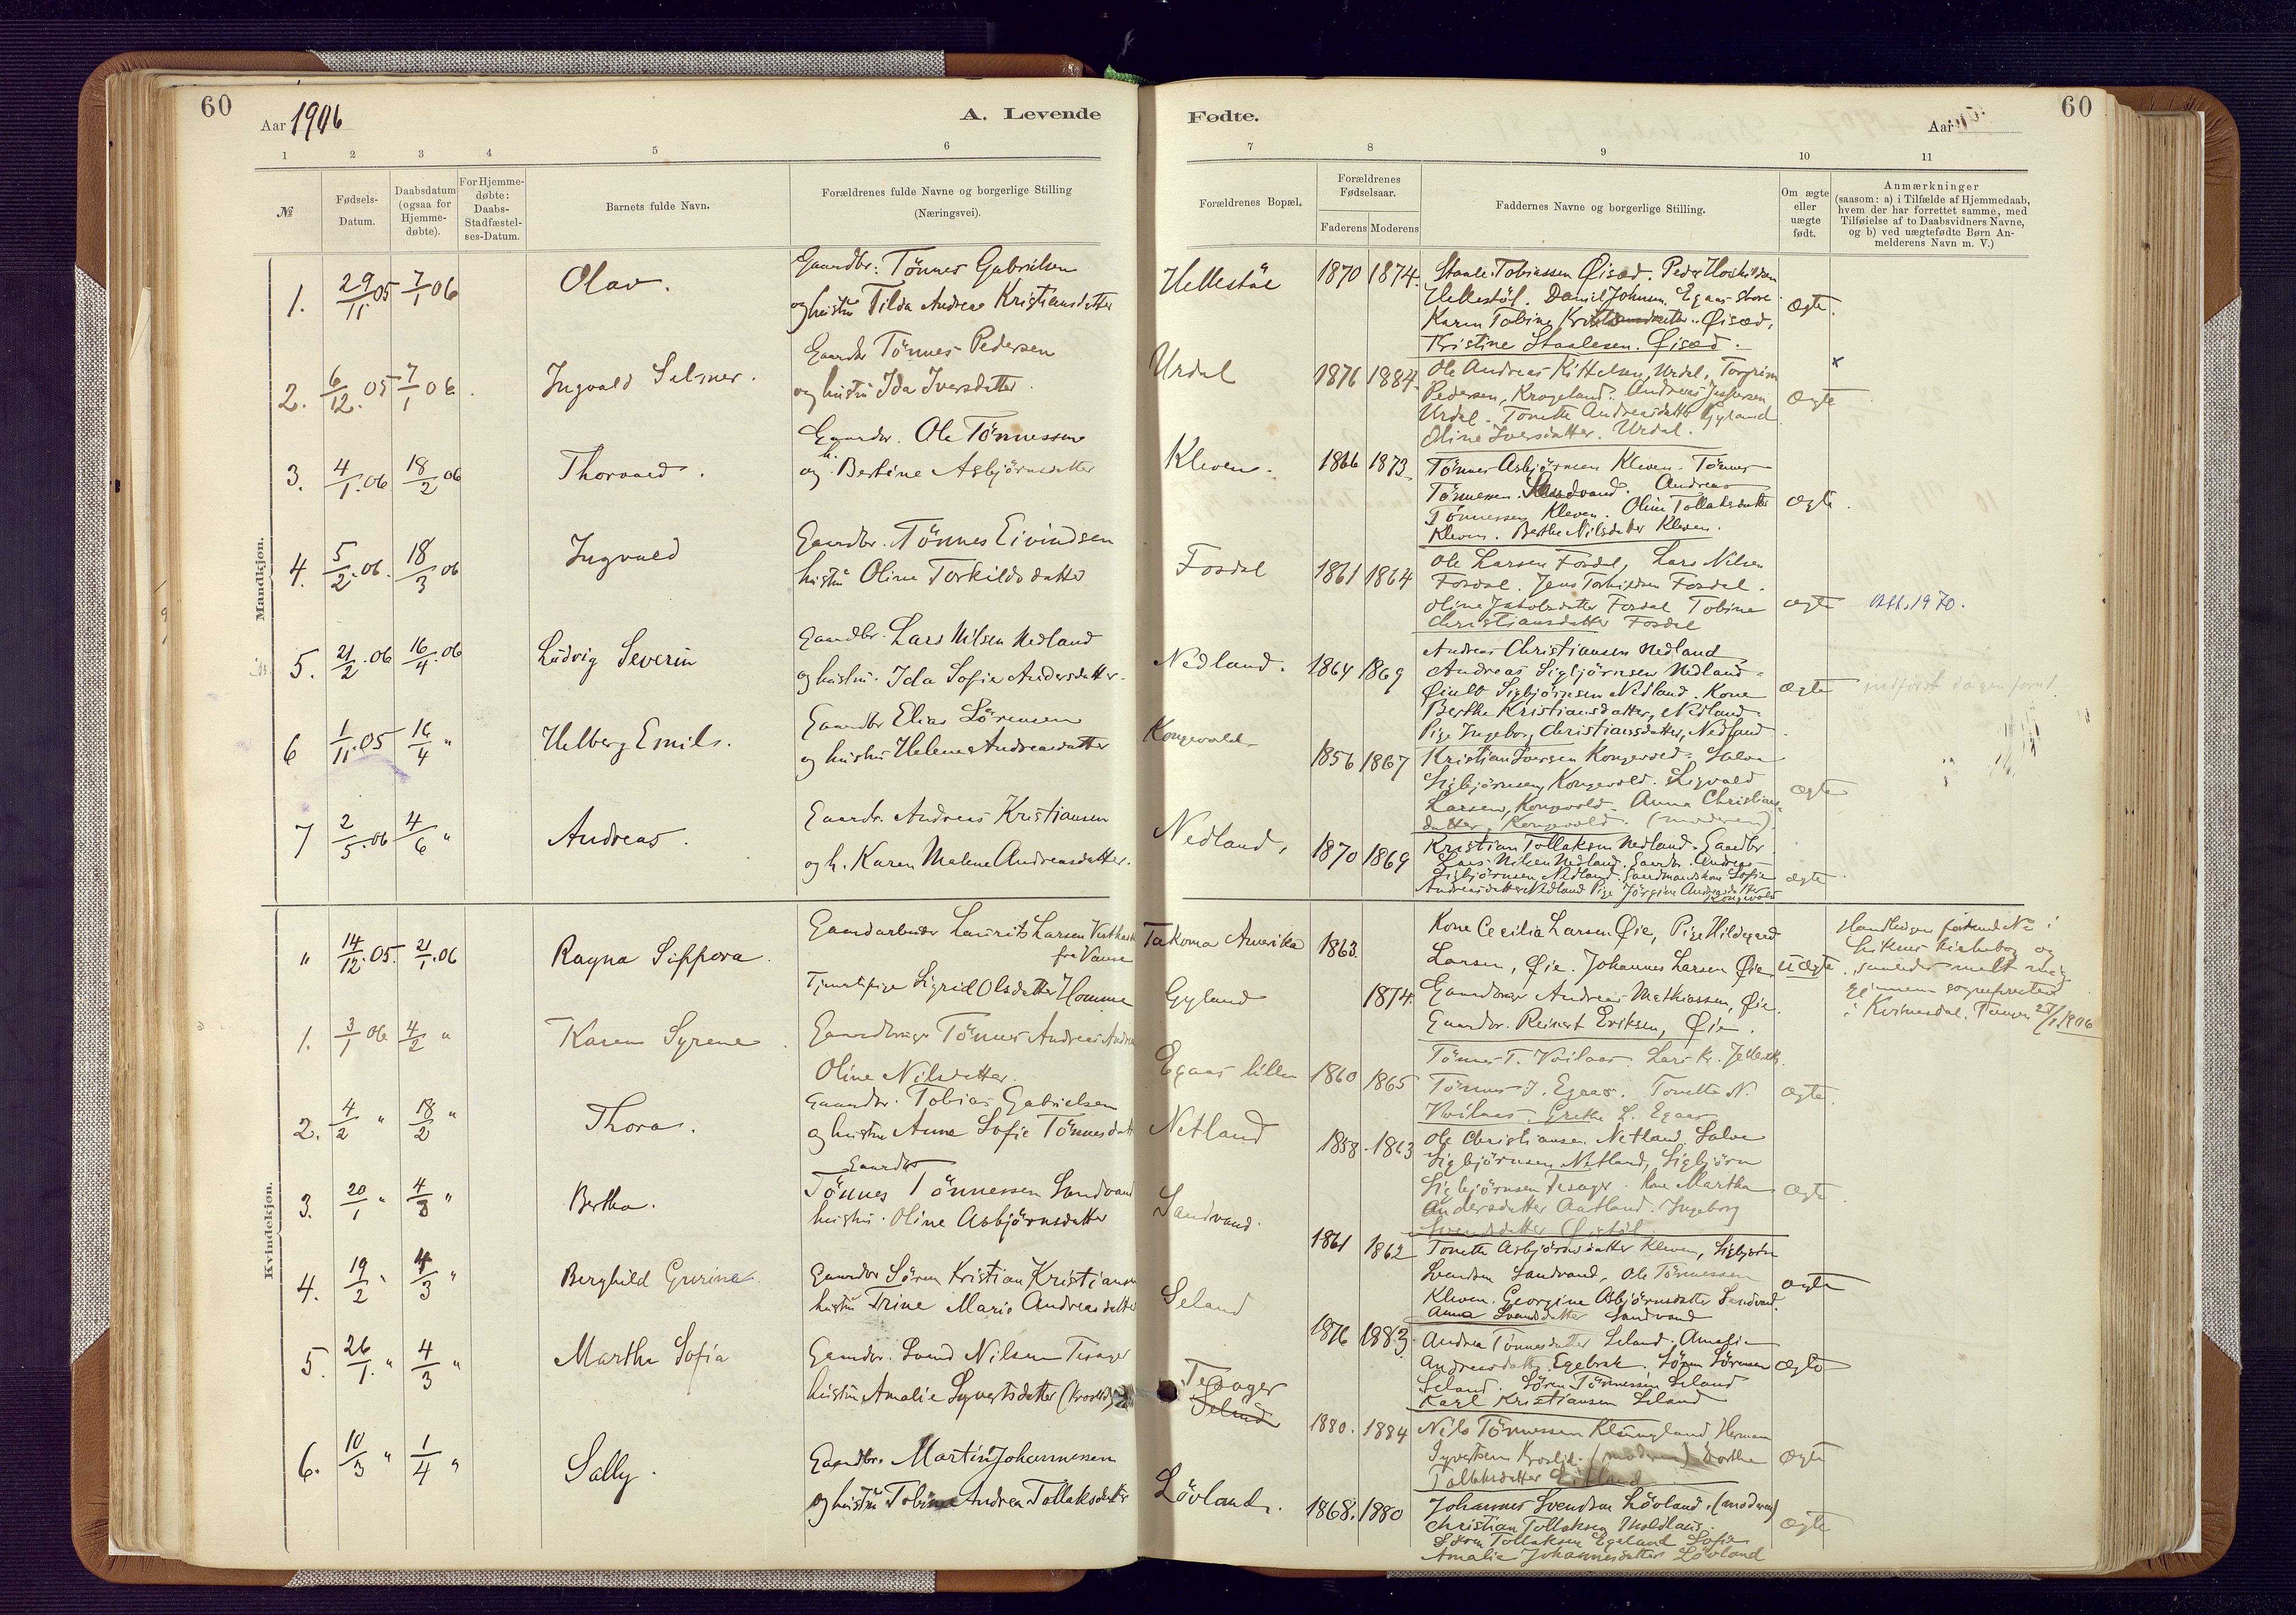 60
Aar 1906
A. Levende
1 2 3 4 5 6
№
Fødsels-Datum.
Daabsdatum (ogsaa for Hjemme-døbte).
For Hjemme-døbte: Daabs-Stadfæstel-ses-Datum.
Barnets fulde Navn.
Forældrenes fulde Navne og borgerlige Stilling
(Næringsvei).
Mandkjøn.
1. 29/11 05 7/1 06 Olav.
Gaardbr. Tönnes Gabrielsen
og hustru Tilda Andrea Kristiansdatter
2. 6/12 05 7/1 06. Ingvald Selmer.
Gaardbr Tönnes Pedersen
og hustru Ida Iversdatter.
3. 4/1 06 18/2 06 Thorvald.
Gaardbr. Ole Tönnessen
og h. Bertine Asbjörnsdatter
4. 5/2 06. 18/3 06 Ingvald
Gaardbr. Tönnes Eivindsen
hustru Oline Torkildsdatter
5. 21/2 06 16/4 06 Ludvig Severin
Gaardbr. Lars Nilsen Nedland
og hustru. Ida Sofie Andersdatter.
6 1/11 05 16/4 " Helberg Emil.
Gaardbr Elias Sörensen
og hustru Helene Andreasdatter
7 2/5 06 4/6 " Andreas.
Gaardbr. Andreas Kristiansen
og h. Karen Malene Andreasdatter.
Kvindekjøn.
" 14/12 05. 21/1 06 Ragna Sippora.
Gaardarbeider Laurits Larsen
fra Vanse
Tjenestepige Sigrid Olsdatter Homme
1. 3/1 06 4/2 " Karen Syrene.
Gaardbruger Tönnes Andreas
Oline Nilsdatter.
2. 4/2 " 18/2 " Thora.
Gaardbr. Tobias Gabrielsen
og hustru Anna Sofie Tönnesdatt
3. 20/1 " 4/3 " Bertha.
Gaardbr
Tönnes Tönnessen Sandvand
hustru. Oline Asbjörnsdatter
4. 19/2 " 4/3 " Berghild Gurine.
Gaardbr Sören Kristian Kristiansen
hustru Trine Marie Andreasdatter
5. 26/1 " 4/3 " Marthe Sofia
Gaardbr. Svend Nilsen Tesager
hustru Amalie Syvertsdatter
6. 10/3 " 1/4 " Sally.
Gaardbr. Martin Johannessen
og hustru Tobine Andrea Tollaksdatter
60
Fødte.
Aar
7 8 9 10 11
Forældrenes Bopæl.
Forældrenes Fødselsaar.
Faderens Moderens
Faddernes Navne og borgerlige Stilling.
Om ægte eller uægte født.
Anmærkninger
(saasom: a) i Tilfælde af Hjemmedaab,
hvem der har forrettet samme, med
Tilføielse af to Daabsvidners Navne,
og b) ved uægtefødte Børn An-
melderens Navn m. V.)
Hellestöl 1870 1874. Staale Tobiassen Öisæd. Peder
Hellestöl. Daniel Johnsen, Egaas store.
Karen Tobine Öisæd. ægte.
Kristine Staalesen. Öisæd.
Urdal 1876 1884. Ole Andreas Kittelsen, Urdal, Torgrim
Pedersen, Krageland. Andreas Jespersen ægte
Urdal. Tonette Andreasdatter Gyland
Oline Iversdatter. Urdal.
Kleven. 1866 1873. Tönnes Asbjörnsen Kleven. Tönnes
Tönnessen. Sandvand. Andreas
Tönnessen Kleven. Oline Tollaksdatter ægte.
Kleven. Berthe Nilsdatter Kleven.
Fosdal 1861 1864 Ole Larsen Fosdal, Lars Nilsen
Fosdal. Jens Torkildsen Fosdal.
Oline Jakobsdatter Fosdal Tobine ægte
Christiansdatter Fosdal
Att. 1970.
Nedland. 1864 1869 Andreas Christiansen Nedland
Andreas Sigbjörnsen Nedland.
Sigbjörnsen Nedland. Kone ægte
Berthe Kristiansdatter, Nedland.
Pige Ingeborg Christiansdatter, Nedland
Kongevold 1856 1867 Kristian Iversen Kongevold. Salve
Sigbjörnsen, Kongevold. Sigvald
Larsen, Kongevold. Anna Christians- ægte
datter, Kongevold. (moderen)
Nedland, 1870 1869 Kristian Tollaksen Nedland. Gaardbr
Lars Nilsen Nedland. Gaardbr. Andreas
Sigbjörnsen, Nedland. Gaardmandskone Sofie ægte
Andreasdatter Nedland Pige Jörgine Andreasdatter
Kongevold
Takoma Amerika 1863. Kone Cecilia Larsen Öie, Pige Hildegard
Larsen, Öie. Johannes Larsen Öie uægte.
Gyland 1874. Gaardbruger Andreas Mathiassen, Öie.
Gaardbr. Reinert Eriksen, Öie.
Egaas lille 1860 1865 Tönnes T. Kvilaas.
Tönnes J. Egaas. Tonette N. ægte.
Kvilaas. Grethe L. Egaas
Netland 1858 1863 Ole Christiansen Netland. Salve
Sigbjörnsen Netland, Sigbjörn
Sigbjörnsen Tesager. Kone Martha ægte.
Andersdatter Aatland. Ingeborg
Svendsdatter
Sandvand. 1861 1862 Tonette Asbjörnsdatter Kleven, Sigbjörn
Svendsen Sandvand, Ole Tönnessen ægte
Kleven. Georgine Asbjörnsdatter Sandvand.
Anna Svendsdatter Sandvand
Seland 1876 1883. Andrea Tönnesdatter Seland. Amalie
Andreasdatter, Egebrek. Sören Sörensen ægte
Seland. Sören Tönnessen Seland
Karl Kristiansen Seland
Tesager
Seland 1880. 1884 Nils Tönnessen Klungland, Herman
Syvertsen Kroslid. (moderen) Dorthe ægte
Tollaksdatter
Lövland. 1868. 1880 Johannes Svendsen Lövland. (moderen)
Christian Tollaksen
Sören Tollaksen Egeland Sofie ægte
Amalie Johannesdatter Lövland